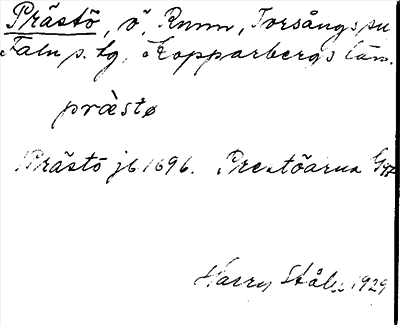 Prästö, ö, Runn, Torsångs sn,
Falu p. tg, Kopparbergs län.
præ̀stø
Prästö jb 1696. Prestöarna
Harry Ståhl 1929